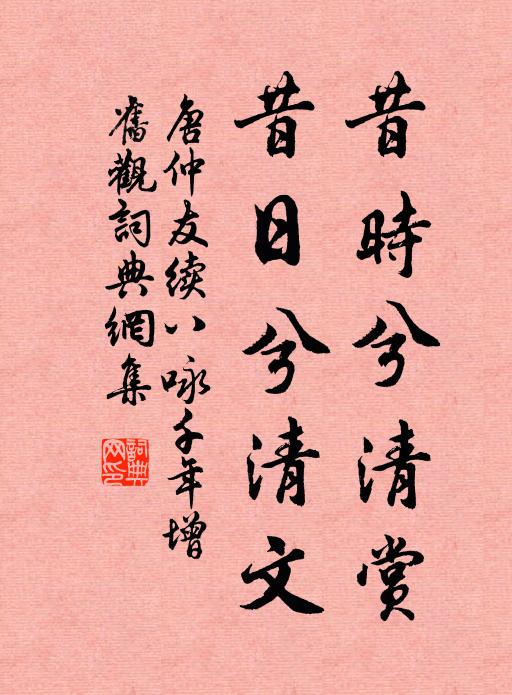 昔時兮清賞
昔日兮清文
唐仲友續八咏千年增
舊觀詞典網集
詞典網印